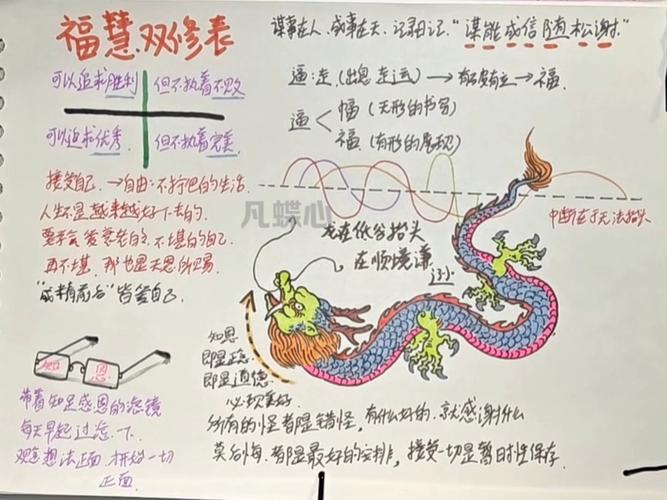 福慧双修表
可以追求胜利 但不执着不败
可以追求优秀 但不执着完美
接受自己 → 自由:不拧巴的生活
人生不是越来越好下去的
要学会爱衰老的、不堪的自己
再不堪,那也是天恩所赐
"成精前后"皆爱自己
谋事在人,成事在天,记录日记,"谋能成信随松谢"
逼:走(出息 走运) → → 福
逼 < 幅(无形的书写)
福(有形的展现)
凡蝶心
龙在低谷抬头
在顺境谦
中断在于无法抬头
知恩
即是正念
即是道德
必现美好
知足 恩
带着知足感恩的滤镜
每天早起过滤一下
观念想法正面,拼好一切
正面
所有的怪都是错怪,有什么好的,就感谢什么
莫后悔,都是最好的安排,接受一切是暂时性保存